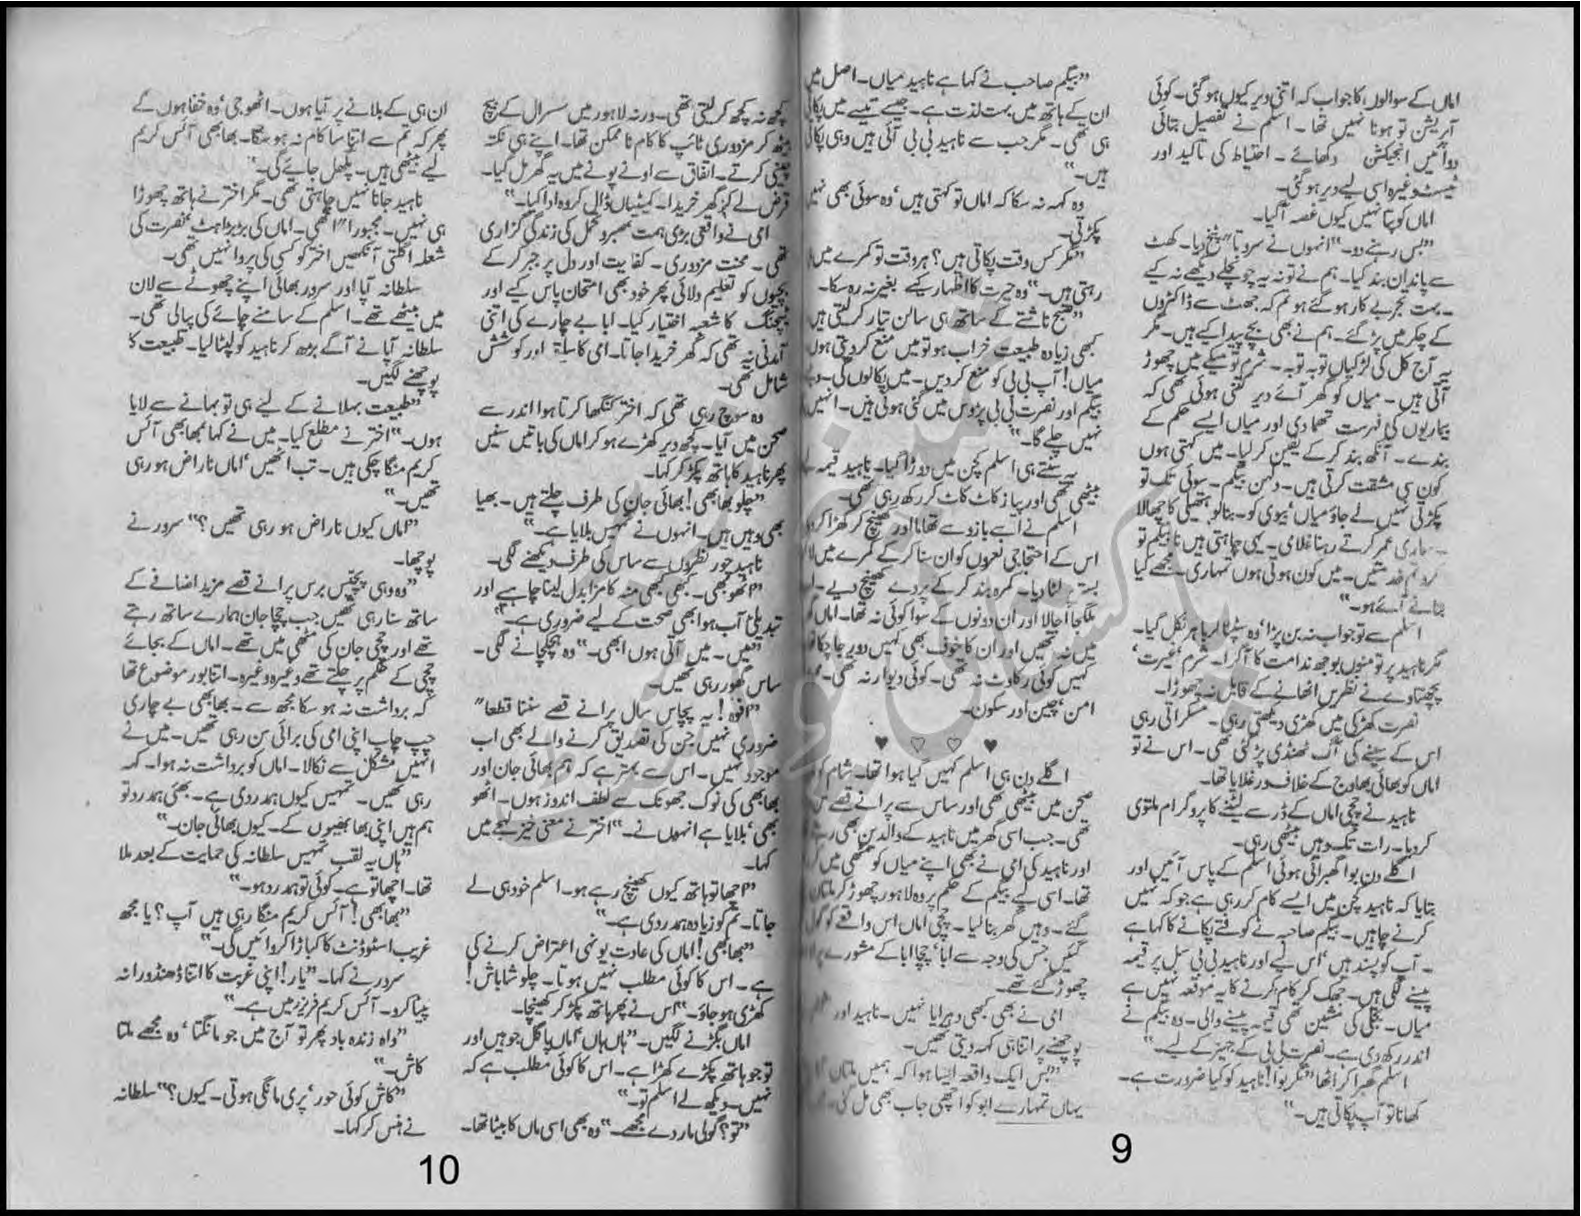 اماں کے سوالوں کا جواب کہ اتنی دیر کیوں ہو گئی۔ کوئی
آپریشن تو ہونا نہیں تھا۔ اسلم نے تفصیل بتائی
دوائیں انجیکشن دکھائے۔ احتیاط کی تاکید اور
ٹیسٹ وغیرہ اسی لیے دیر ہو گئی۔
اماں کو پتا نہیں کیوں غصہ آ گیا۔
"بس رہنے دو۔" انہوں نے سروتا پٹخ دیا۔ کھٹ
سے پاندان بند کیا۔ ہم نے تو نہ یہ چونچلے دیکھے نہ کیے
۔ بہت تجربے کار ہو گئے ہو تم کہ جھٹ سے ڈاکٹروں
کے چکر میں پڑ گئے۔ ہم نے بھی بچے پیدا کیے ہیں۔ مگر
یہ آج کل کی لڑکیاں توبہ توبہ۔ شرم تو میکے میں چھوڑ
آتی ہیں۔ میاں کو گھر آئے دیر نہیں ہوئی تھی کہ
بیماریوں کی فہرست تھما دی اور میاں ایسے حکم کے
بندے۔ آنکھ بند کر کے یقین کر لیا۔ میں کہتی ہوں
کون سی مشقت کرتی ہیں۔ دلہن بیگم۔ سوئی تک تو
پکڑتی نہیں لے جاؤ میاں بیوی کو۔ بنا لو ہتھیلی کا چھالا
۔ ساری عمر کرتے رہنا غلامی۔ یہی چاہتی ہیں نا بیگم تو
کرو تم خدمتیں۔ میں کون ہوتی ہوں تمہاری۔ مجھے کیا
بتانے آئے ہو۔"
اسلم سے تو جواب نہ بن پڑا، وہ سٹپٹا کر باہر نکل گیا۔
مگر ناہید پر تو منوں بوجھ ندامت کا آ گرا۔ شرم، غیرت،
پچھتاوے نے نظریں اٹھانے کے قابل نہ چھوڑا۔
نصرت کھڑکی میں کھڑی دیکھتی رہی۔ مسکراتی رہی
اس کے سینے کی آگ ٹھنڈی پڑ گئی تھی۔ اس نے تو
اماں کو بھائی بھاوج کے خلاف ورغلایا تھا۔
ناہید نے چچی اماں کے ڈر سے لیٹنے کا پروگرام ملتوی
کر دیا۔ رات تک وہیں بیٹھی رہی۔
اگلے دن بوا گھبرائی ہوئی اسلم کے پاس آئیں اور
بتایا کہ ناہید کچن میں ایسے کام کر رہی ہے جو کہ نہیں
کرنے چاہیں۔ بیگم صاحبہ نے کوفتے پکانے کا کہا ہے
۔ آپ کو پسند ہیں، اس لیے اور ناہید بی بی سل پر قیمہ
پیسنے لگی ہیں۔ جھک کر کام کرنے کا یہ موقعہ نہیں ہے
میاں۔ بجلی کی مشین تھی قیمہ پیسنے والی۔ وہ بیگم نے
اندر رکھ دی ہے۔ نصرت بی بی کے جہیز کے لیے۔"
اسلم گھبرا کر اٹھا "مگر بوا! ناہید کو کیا ضرورت ہے۔
کھانا تو آپ پکاتی ہیں۔"
"بیگم صاحب نے کہا ہے ناہید میاں۔ اصل میں
ان کے ہاتھ میں بہت لذت ہے۔ جیسے تیسے میں پکاتی
ہی تھی۔ مگر جب سے ناہید بی بی آئی ہیں وہی پکاتی
ہیں۔"
وہ کہہ نہ سکا کہ اماں تو کہتی ہیں، وہ سوئی بھی نہیں
پکڑتی۔
"مگر کس وقت پکاتی ہیں؟ ہر وقت تو کمرے میں
رہتی ہیں۔" وہ حیرت کا اظہار کیے بغیر نہ رہ سکا۔
"صبح ناشتے کے ساتھ ہی سالن تیار کر لیتی ہیں
کبھی زیادہ طبیعت خراب ہو تو میں منع کر دیتی ہوں
میاں! آپ بی بی کو منع کر دیں۔ میں پکا لوں گی۔
بیگم اور نصرت بی بی پڑوس میں گئی ہوئی ہیں۔ انہیں
نہیں چلے گا۔"
یہ سنتے ہی اسلم کچن میں دوڑا گیا۔ ناہید قیمہ لے
بیٹھی تھی اور پیاز کاٹ کاٹ کر رکھ رہی تھی۔
اسلم نے اسے بازو سے تھاما اور کھینچ کر کھڑا کر دیا
اس کے احتجاجی نعروں کو ان سنا کر کے کمرے میں لا کر
بستر پر لٹا دیا۔ کمرہ بند کر کے پردے کھینچ دیے۔
ملگجا اجالا اور ان دونوں کے سوا کوئی نہ تھا۔ اماں
میں نہ تھیں اور ان کا خوف بھی کہیں دور جا چکا تھا
کہیں کوئی رکاوٹ نہ تھی۔ کوئی دیوار نہ تھی۔
امن، چین اور سکون۔
♥ ♡ ♡ ♥
اگلے دن ہی اسلم کہیں گیا ہوا تھا۔ شام کو
صحن میں بیٹھی تھی اور ساس سے پرانے قصے
تھی۔ جب اسی گھر میں ناہید کے والدین بھی رہتے
اور ناہید کی امی نے بھی اپنے میاں کو مٹھی میں
تھا۔ اسی لیے بیگم کے حکم پر وہ لاہور چھوڑ کر ملتان
گئے۔ وہیں گھر بنا لیا۔ چچی اماں اس واقعے کو گول
گئیں جس کی وجہ سے ابا، چچا ابا کے مشورے پر
چھوڑ گئے تھے۔
امی نے بھی کبھی دہرایا نہیں۔ ناہید اور
پوچھنے پر اتنا ہی کہہ دیتی تھیں۔
"بس ایک واقعہ ایسا ہوا کہ ہمیں ملتان
یہاں تمہارے ابو کو اچھی جاب بھی مل گئی۔
9
کچھ نہ کچھ کر لیتی تھی۔ ورنہ لاہور میں سسرال کے بیچ
بیٹھ کر مزدوری ٹائپ کا کام ناممکن تھا۔ اپنے ہی نکتہ
چینی کرتے۔ اتفاق سے اونے پونے میں یہ گھر مل گیا۔
قرض لے کر گھر خریدا۔ کمیٹیاں ڈال کر وہ ادا کیا۔"
امی نے واقعی بڑی ہمت صبر و تحمل کی زندگی گزاری
تھی۔ محنت مزدوری۔ کفایت اور دل پر جبر کر کے
بچیوں کو تعلیم دلائی پھر خود بھی امتحان پاس کیے اور
ٹیچنگ کا شعبہ اختیار کیا۔ ابا بے چارے کی اتنی
آمدنی نہ تھی کہ گھر خریدا جاتا۔ امی کا سلیقہ اور کوشش
شامل تھی۔
وہ سوچ رہی تھی کہ اختر کنگھا کرتا ہوا اندر سے
صحن میں آیا۔ کچھ دیر کھڑے ہو کر اماں کی باتیں سنیں
پھر ناہید کا ہاتھ پکڑ کر کہا۔
"چلو بھابھی! بھائی جان کی طرف چلتے ہیں۔ بھیا
بھی وہیں ہیں۔ انہوں نے تمہیں بلایا ہے۔"
ناہید چور نظروں سے ساس کی طرف دیکھنے لگی۔
"اٹھو بھی۔ کبھی کبھی منہ کا مزا بدل لینا چاہیے اور
تبدیلی آب ہوا بھی صحت کے لیے ضروری ہے۔"
"نہیں۔ میں آتی ہوں ابھی۔" وہ ہچکچانے لگی۔
ساس گھور رہی تھیں۔
"افوہ! یہ پچاس سال پرانے قصے سننا قطعا"
ضروری نہیں جن کی تصدیق کرنے والے بھی اب
موجود نہیں۔ اس سے بہتر ہے کہ ہم بھائی جان اور
بھابھی کی نوک جھونک سے لطف اندوز ہوں۔ اٹھو
بھی، بلایا ہے انہوں نے۔" اختر نے معنی خیز لہجے میں
کہا۔
"اچھا تو ہاتھ کیوں کھینچ رہے ہو۔ اسلم خود ہی لے
جاتا۔ تم کو زیادہ ہمدردی ہے۔"
"بھابھی! اماں کی عادت یونہی اعتراض کرنے کی
ہے۔ اس کا کوئی مطلب نہیں ہوتا۔ چلو شاباش!
کھڑی ہو جاؤ۔" اس نے پھر ہاتھ پکڑ کر کھینچا۔
اماں بگڑنے لگیں۔ "ہاں ہاں، اماں پاگل جو ہیں اور
تو جو ہاتھ پکڑے کھڑا ہے۔ اس کا کوئی مطلب ہے کہ
نہیں۔ دیکھ لے اسلم تو۔"
"تو؟ گولی مار دے مجھے۔" وہ بھی اسی ماں کا بیٹا تھا۔
ان ہی کے بلانے پر آیا ہوں۔ اٹھو جی، وہ خفا ہوں گے
پھر کہ تم سے اتنا سا کام نہ ہو سکا۔ بھابھی آئس کریم
لیے بیٹھی ہیں۔ پگھل جائے گی۔"
ناہید جانا نہیں چاہتی تھی۔ مگر اختر نے ہاتھ چھوڑا
ہی نہیں۔ مجبورا" اٹھی۔ اماں کی بڑبڑاہٹ، نصرت کی
شعلہ اگلتی آنکھیں اختر کو کسی کی پروا نہیں تھی۔
سلطانہ آپا اور سرور بھائی اپنے چھوٹے سے لان
میں بیٹھے تھے۔ اسلم کے سامنے چائے کی پیالی تھی۔
سلطانہ آپا نے آگے بڑھ کر ناہید کو لپٹا لیا۔ طبیعت کا
پوچھنے لگیں۔
"طبیعت بہلانے کے لیے ہی تو بہانے سے لایا
ہوں۔" اختر نے مطلع کیا۔ میں نے کہا بھابھی آئس
کریم منگا چکی ہیں۔ تب اٹھیں، اماں ناراض ہو رہی
تھیں۔"
"اماں کیوں ناراض ہو رہی تھیں؟" سرور نے
پوچھا۔
"وہ وہی پچیس برس پرانے قصے مزید اضافے کے
ساتھ سنا رہی تھیں جب چچا جان ہمارے ساتھ رہتے
تھے اور چچی جان کی مٹھی میں تھے۔ اماں کے بجائے
چچی کے حکم پر چلتے تھے وغیرہ وغیرہ۔ اتنا بور موضوع تھا
کہ برداشت نہ ہو سکا مجھ سے۔ بھابھی بے چاری
چپ چاپ اپنی امی کی برائی سن رہی تھیں۔ میں نے
انہیں مشکل سے نکالا۔ اماں کو برداشت نہ ہوا۔ کہہ
رہی تھیں۔ تمہیں کیوں ہمدردی ہے۔ بھئی ہمدرد تو
ہم ہیں اپنی بھابھیوں کے۔ کیوں بھائی جان۔"
"ہاں یہ لقب تمہیں سلطانہ کی حمایت کے بعد ملا
تھا۔ اچھا تو ہے۔ کوئی تو ہمدرد ہو۔"
"بھابھی! آئس کریم منگا رہی ہیں آپ؟ یا مجھ
غریب اسٹوڈنٹ کا کباڑا کروائیں گی۔"
سرور نے کہا۔ "یار! اپنی غربت کا اتنا ڈھنڈورا نہ
پیٹا کرو۔ آئس کریم فریزر میں ہے۔"
"واہ زندہ باد پھر تو آج میں جو مانگتا، وہ مجھے ملتا
کاش۔"
"کاش کوئی حور، پری مانگی ہوتی۔ کیوں؟" سلطانہ
نے ہنس کر کہا۔
10